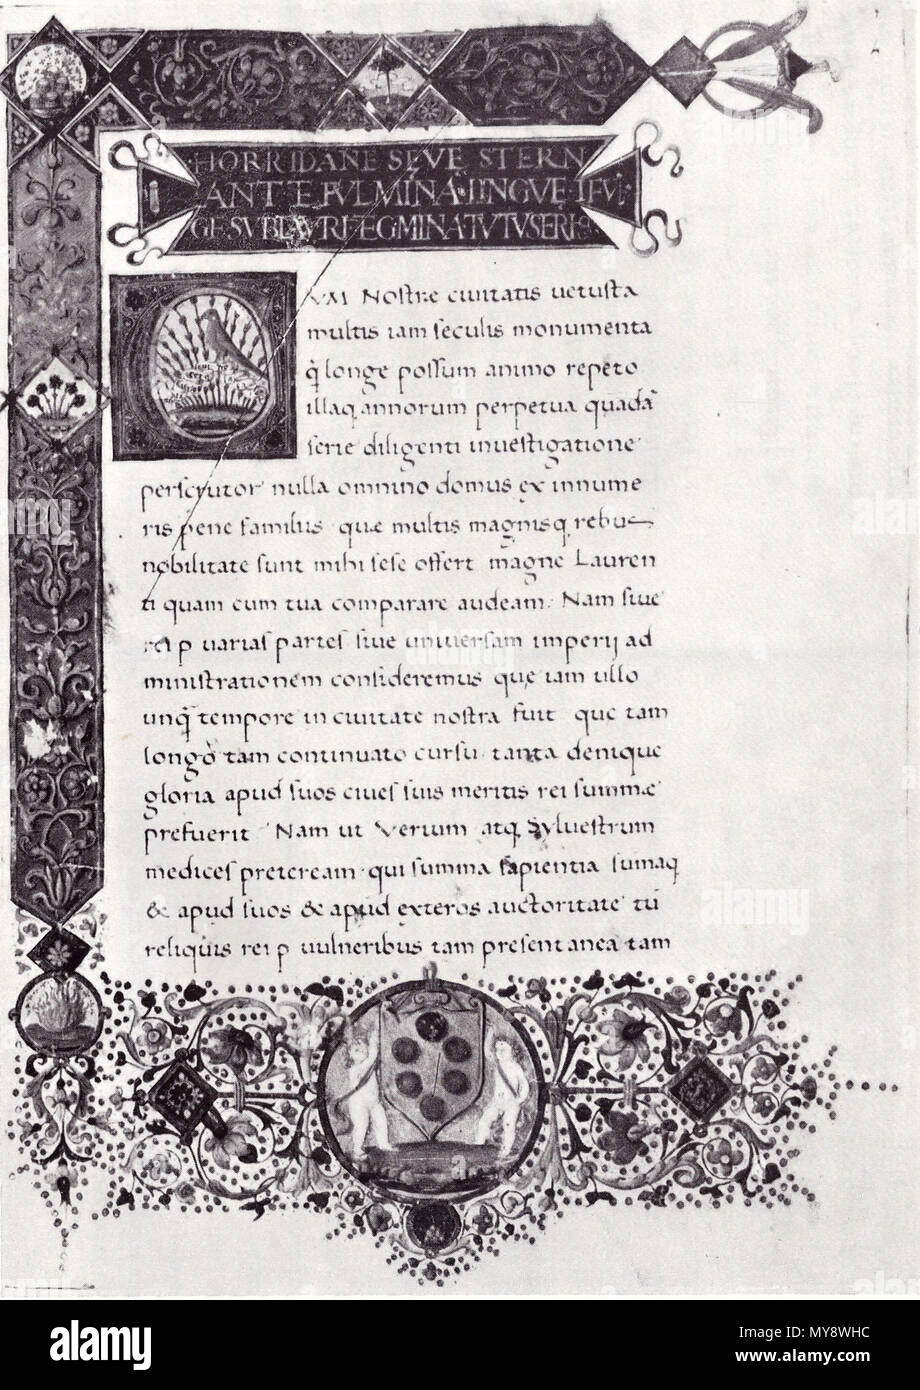 HORRIDANE SEVE STERN
ANTE FVLMINA LINGVE
VM Nostre ciuitatis uetusta
multis iam seculis monumenta
q̃ longe possum animo repeto
illaq annorum perpetua quadã
serie diligenti inuestigatione
perscrutor nulla omnino domus ex innume
ris pene familiis que multis magnisq rebus
nobilitate sunt mihi sese offert magne Lauren
ti quam cum tua comparare audeam. Nam siue
rei p uarias partes siue uniuersam imperij ad
ministrationem consideremus que iam ullo
unq̃ tempore in ciuitate nostra fuit que tam
longo tam continuato cursu tanta denique
gloria apud suos ciues suis meritis rei summæ
prefuerit Nam ut Verium atq Syluestrum
medices preteream qui summa sapientia sumaq
& apud suos & apud exteros auctoritate tũ
reliquis rei p uulneribus tam presentanea tam
alamy
alamy
Image ID: MY8WHC
www.alamy.com